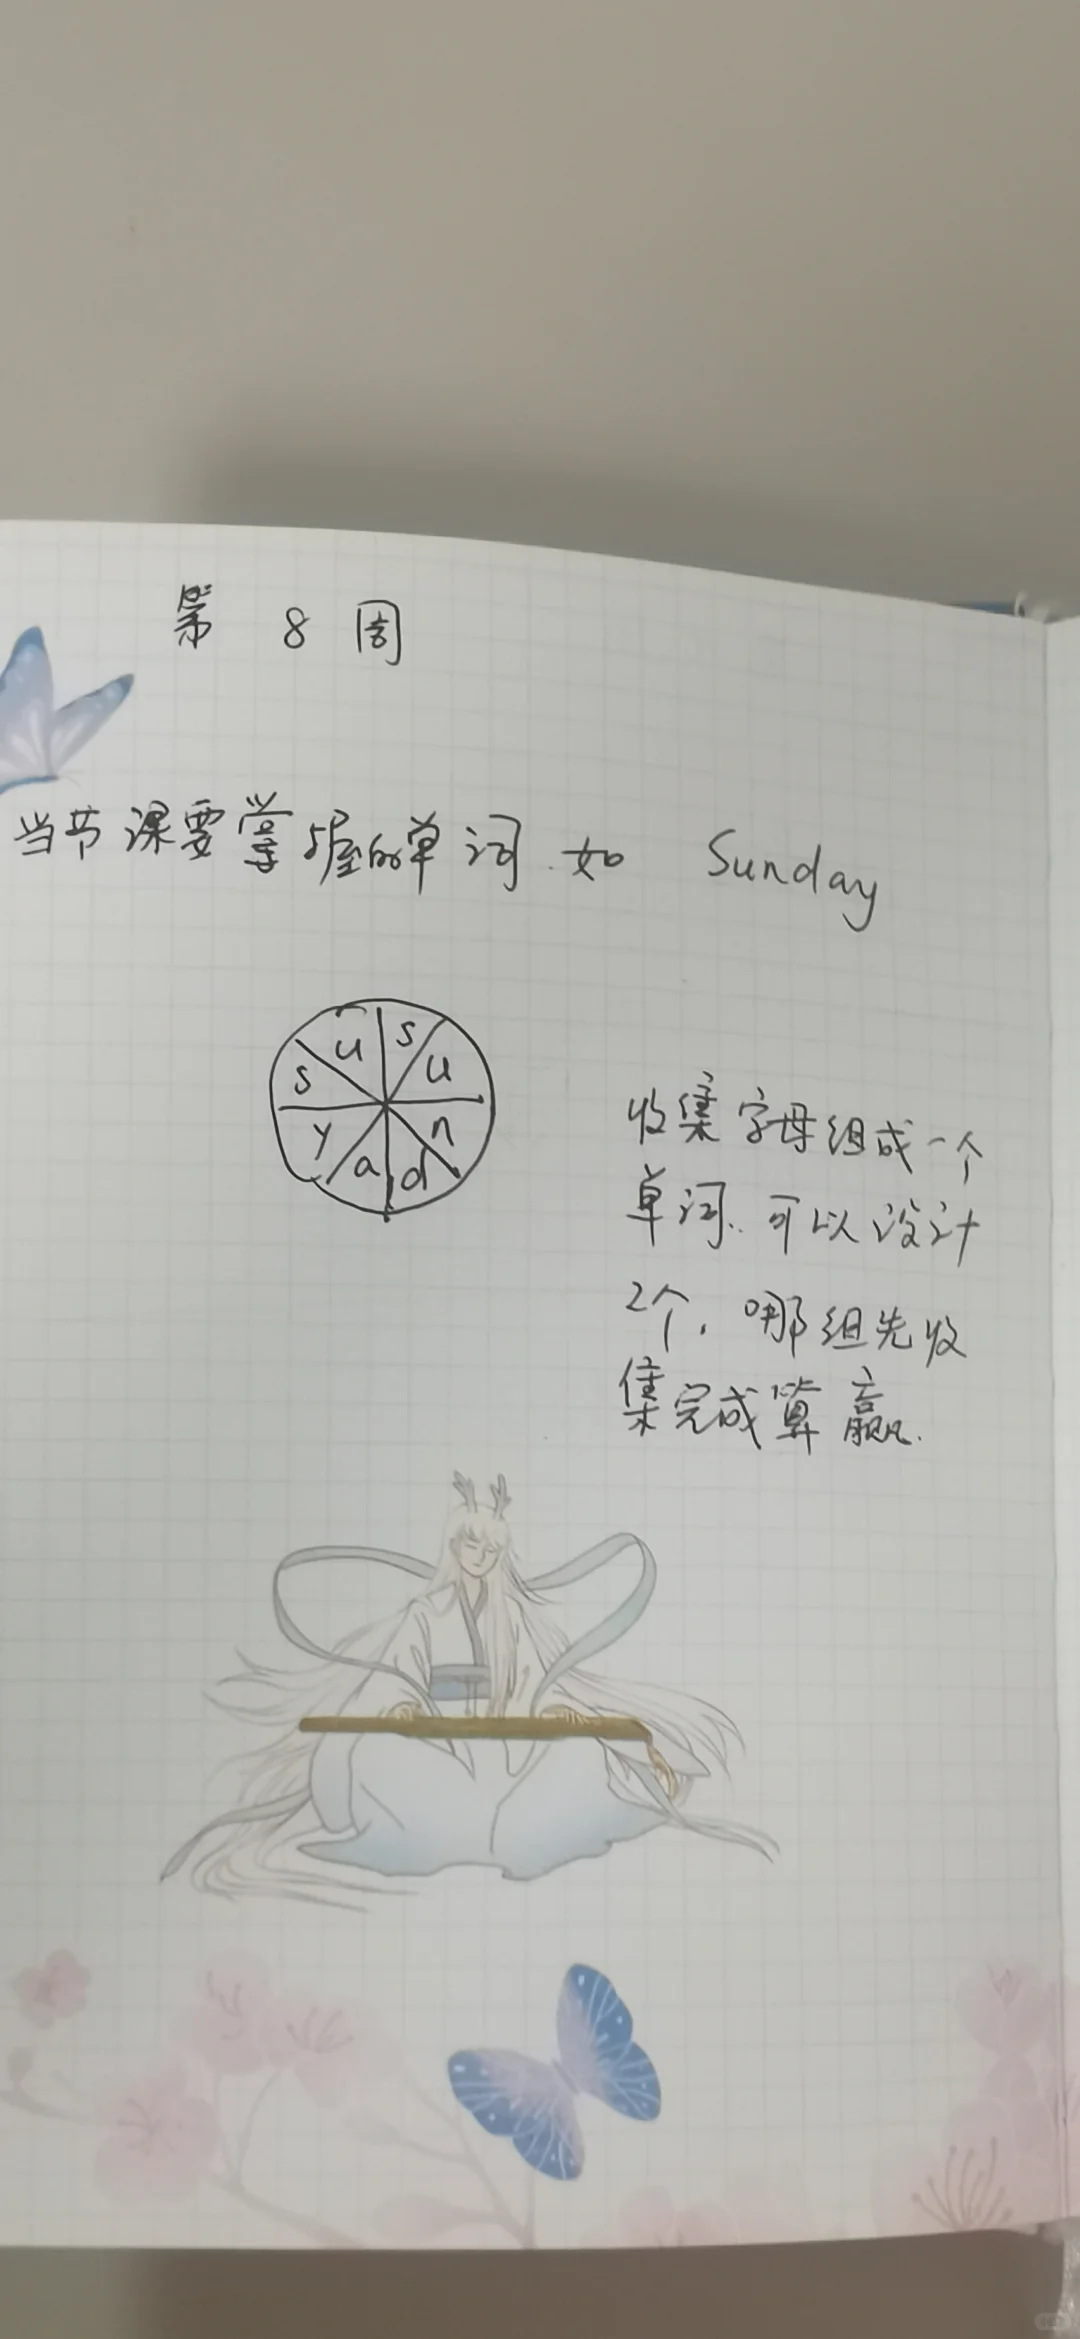 第 8 周
当节课要掌握的单词.如 Sunday
u s
s u
y n
a d
收集字母组成一个
单词.可以设计
2个.哪组先收
集完成算赢.